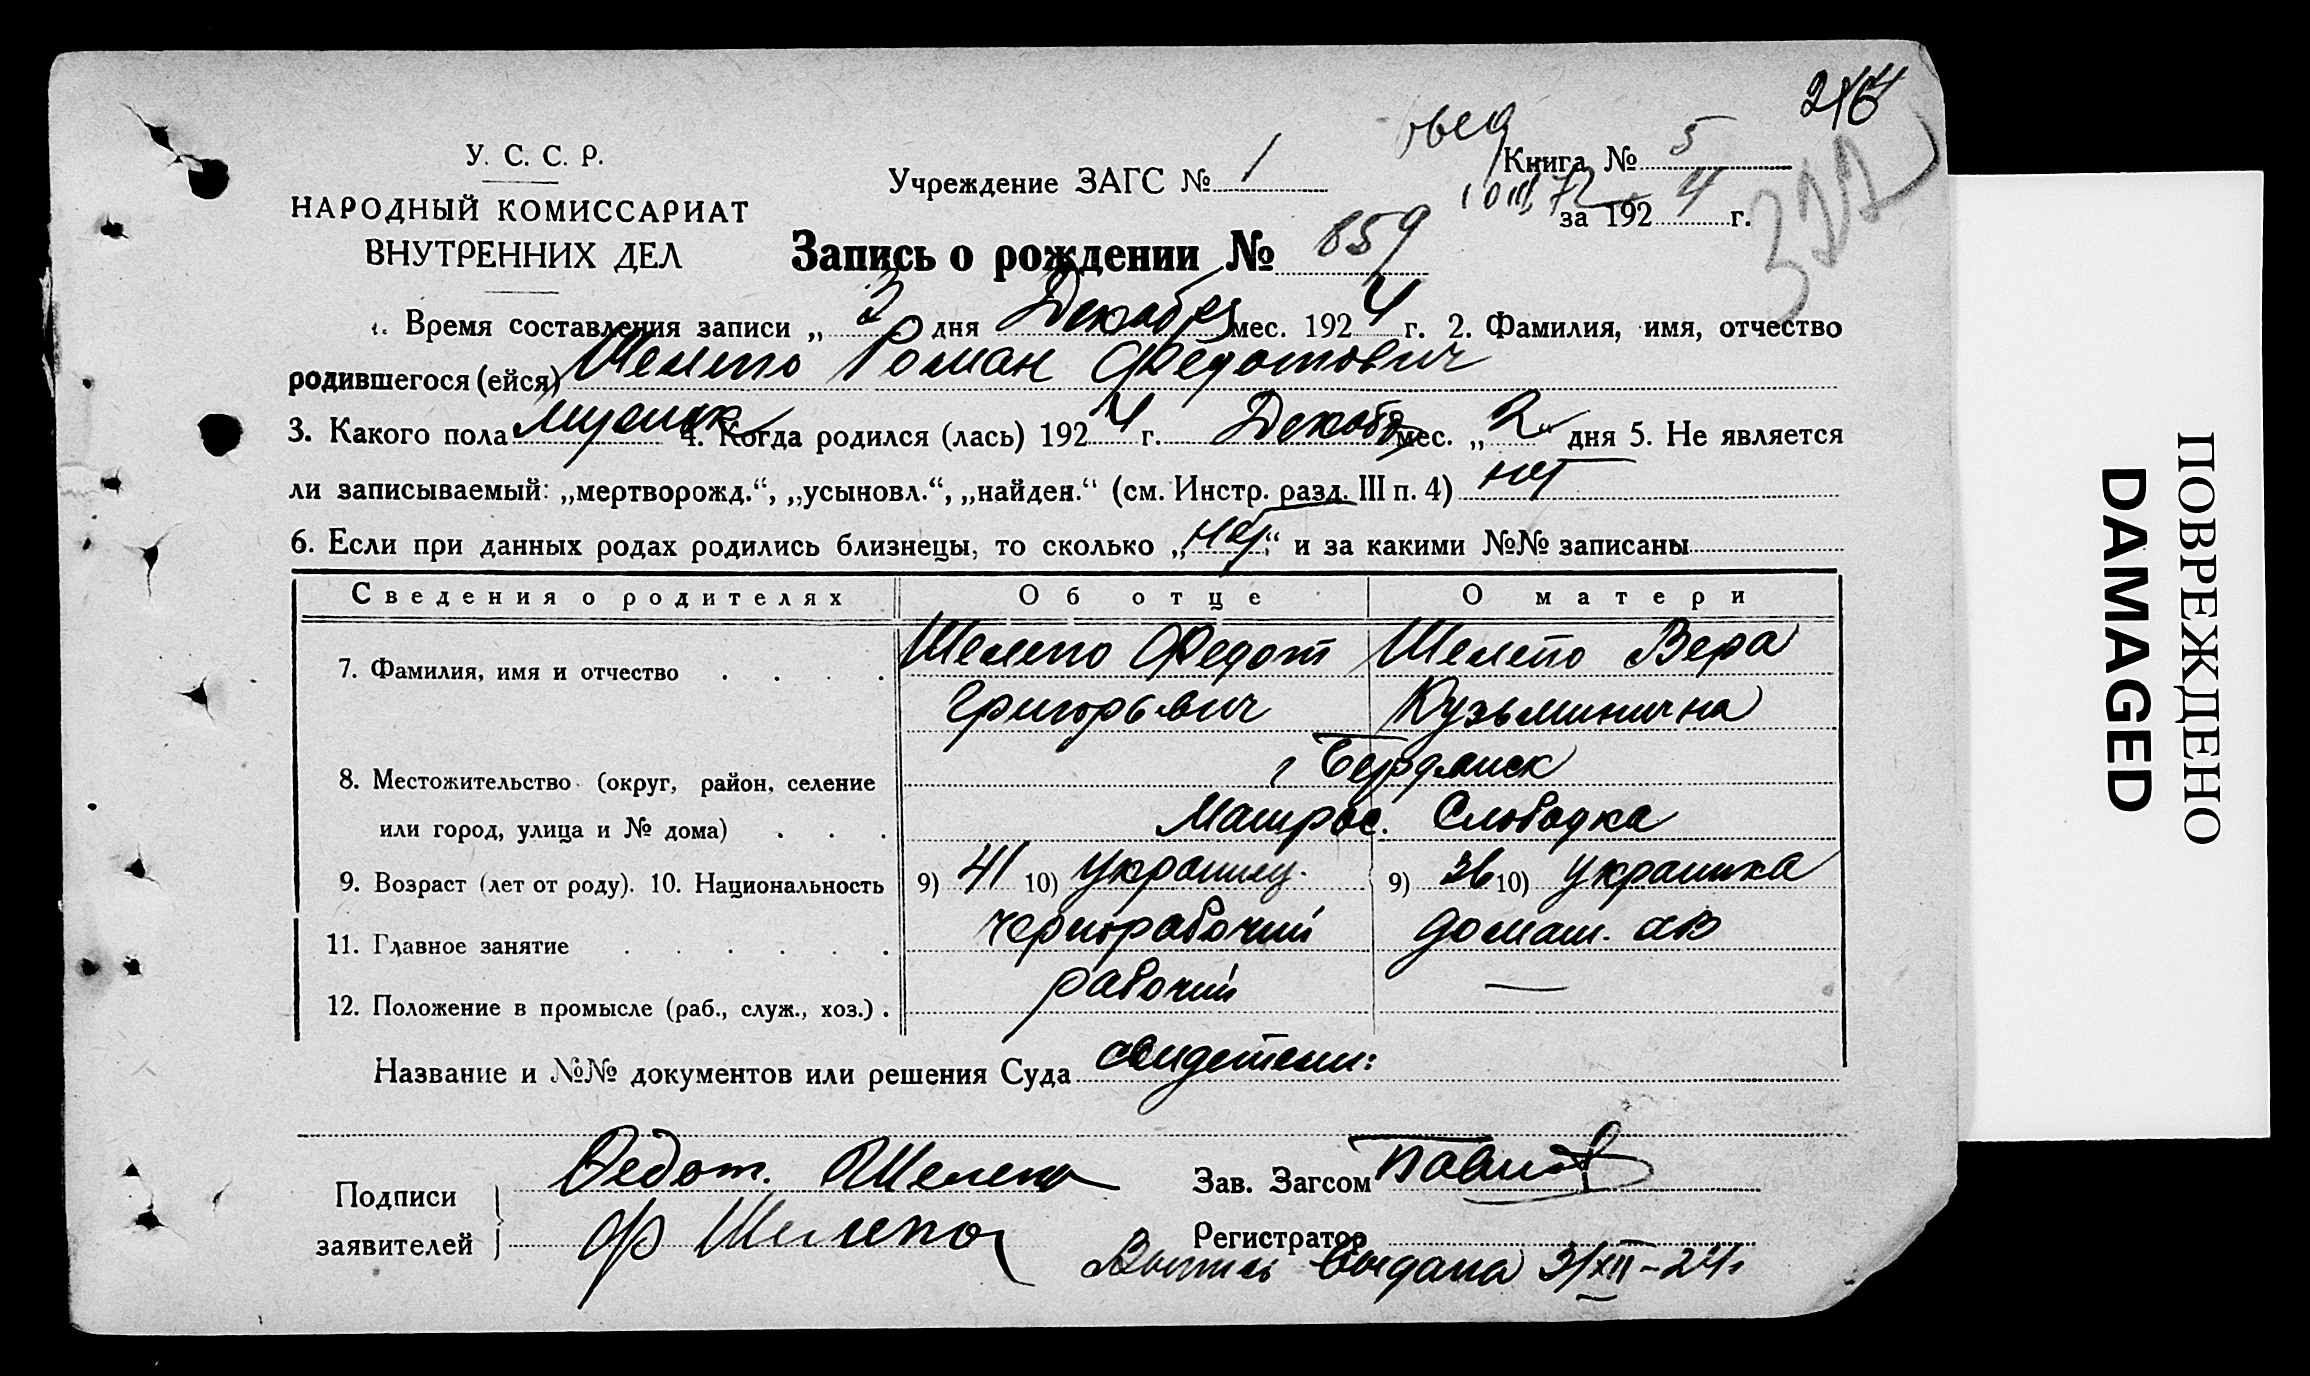 У. С. С. Р.
НАРОДНЫЙ КОМИССАРИАТ
ВНУТРЕННИХ ДЕЛ
Учреждение ЗАГС № 1
Книга № 5
за 1924 г.
Запись о рождении № 859
1. Время составления записи „3“ дня Декабря мес. 1924 г. 2. Фамилия, имя, отчество
родившегося (ейся) Шелепо Роман Федотович
3. Какого пола мужск 4. Когда родился (лась) 1924 г. Декабря мес. „2“ дня 5. Не является
ли записываемый: „мертворожд.“, „усыновл.“, „найден.“ (см. Инстр. разд. III п. 4) нет
6. Если при данных родах родились близнецы, то сколько „нет“ и за какими №№ записаны
Сведения о родителях Об отце О матери
7. Фамилия, имя и отчество Шелепо Федот Шелепо Вера
Григорьевич Кузьминична
г Бердянск
8. Местожительство (округ, район, селение
или город, улица и № дома) Матрос. Слободка
9. Возраст (лет от роду). 10. Национальность 9) 41 10) украинец. 9) 36 10) украинка
11. Главное занятие чернорабочий домаш. хоз
12. Положение в промысле (раб., служ., хоз.) рабочий —
Название и №№ документов или решения Суда свидетели:
Подписи
заявителей
Федот. Шелепо
Ф Шелепо
Зав. Загсом
Регистратор
Выпись выдана 3/XII-24г.
ПОВРЕЖДЕНО
DAMAGED